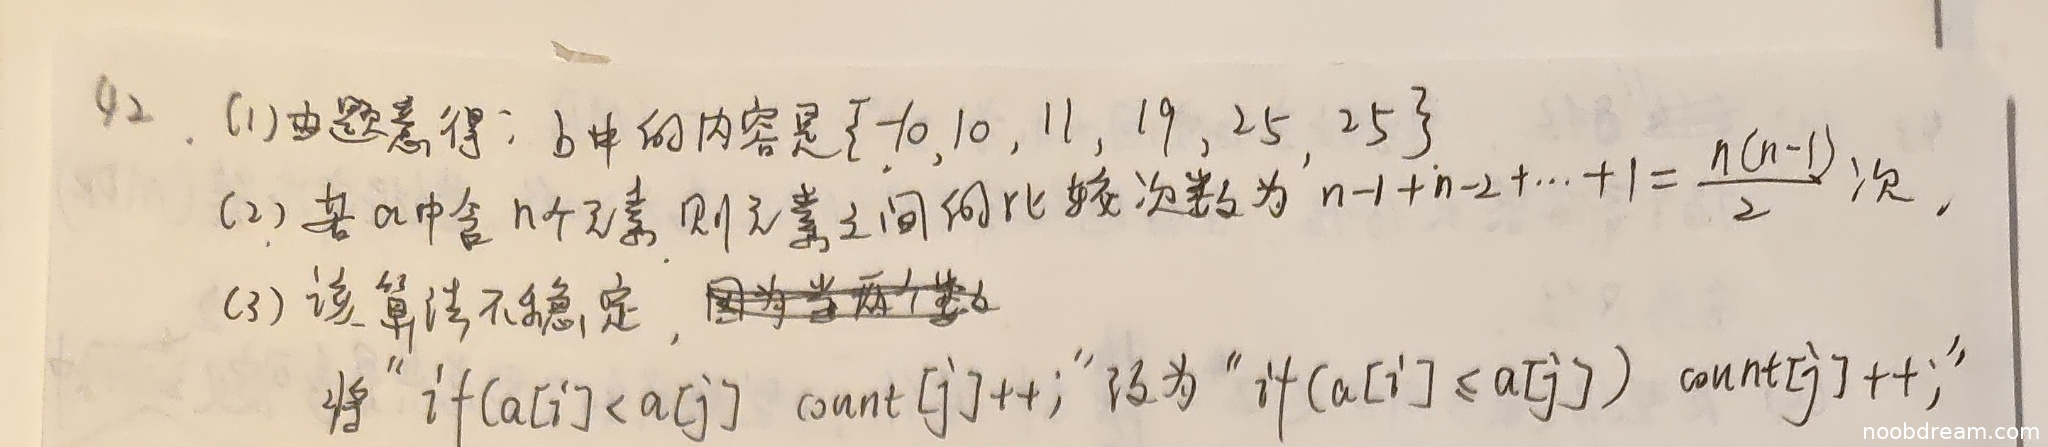 42. (1)由题意得: b中的内容是{-10, 10, 11, 19, 25, 25}
(2) 若a中含n个元素, 则元素之间的比较次数为 n-1+n-2+…+1 = n(n-1)/2 次.
(3) 该算法不稳定, 因为当两个数
将"if(a[i]<a[j] count[j]++;"改为"if(a[i]≤a[j]) count[j]++;"
noobdream.com